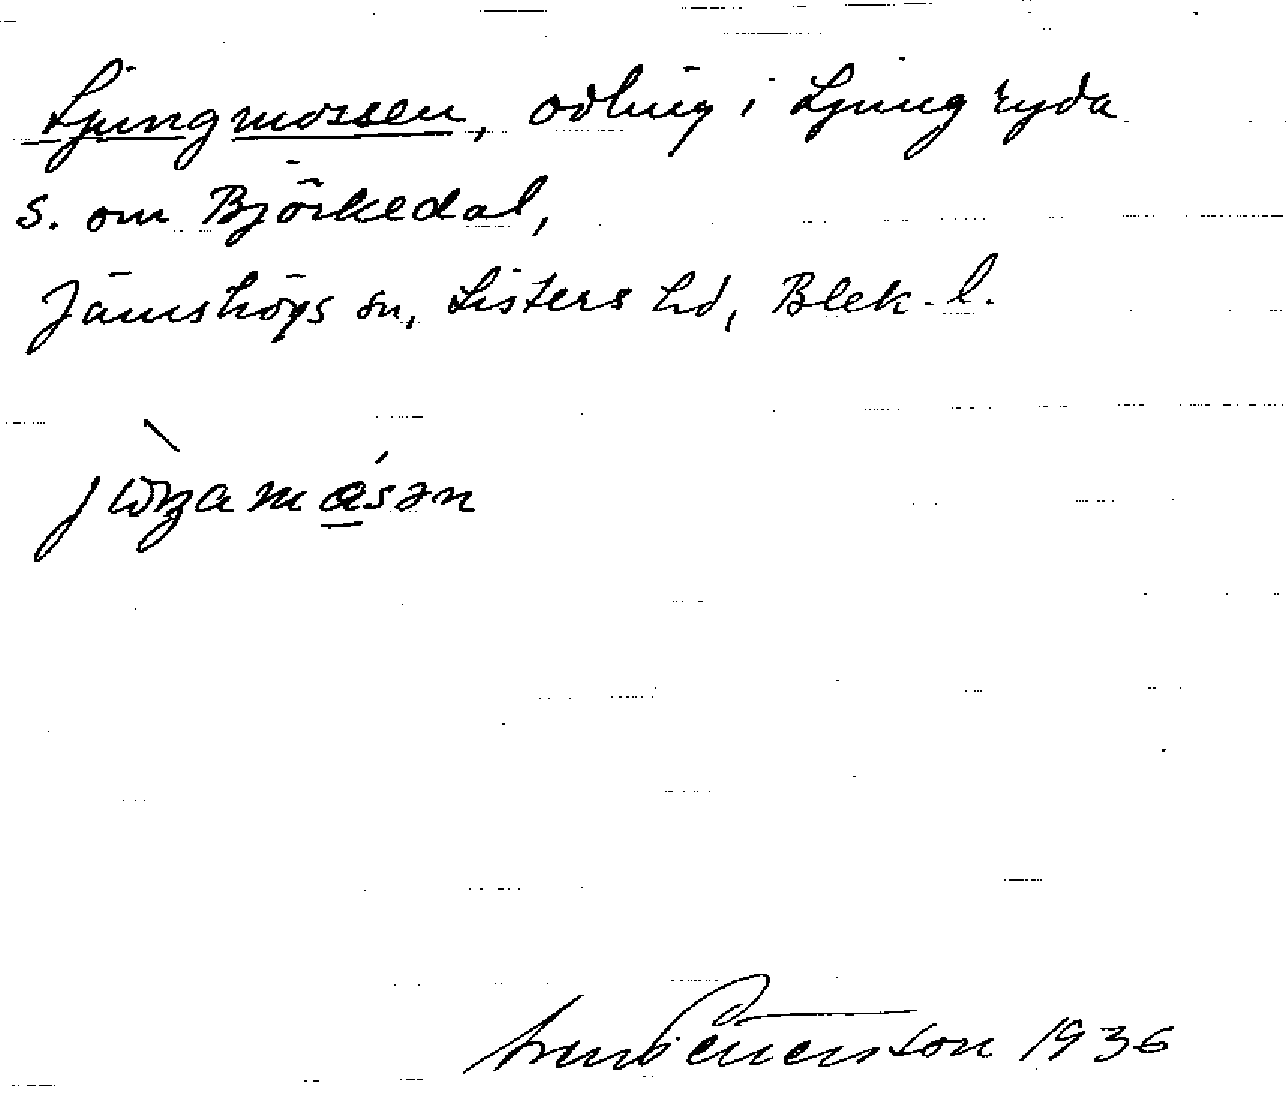 Ljungmossen, odling i Ljungryda
s. om Björkedal,
Jämshögs sn, Listers hd, Blek. l.
1936